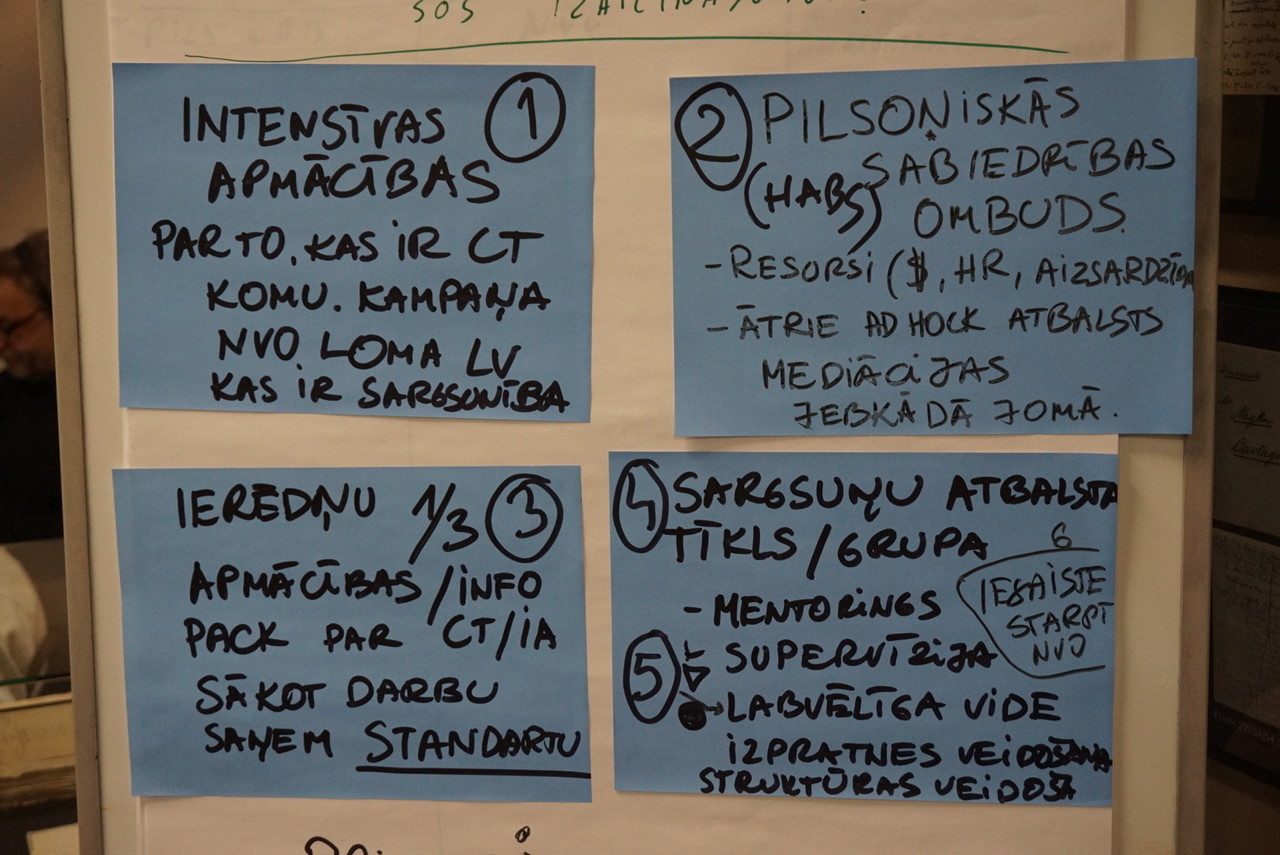 SOS
INTENSĪVAS ①
APMĀCĪBAS
PAR TO, KAS IR CT
KOMU. KAMPAŅA
NVO LOMA LV
KAS IR SARGSUNĪBA
② PILSOŅISKĀS
(HABS) SABIEDRĪBAS
OMBUDS.
- RESORSI ($, HR, AIZSARDZĪBA
- ĀTRIE AD HOCK ATBALSTS
MEDIĀCIJAS
JEBKĀDĀ JOMĀ.
IERĒDŅU 1/3 ③
APMĀCĪBAS/INFO
PACK PAR CT/IA
SĀKOT DARBU
SAŅEM STANDARTU
④ SARGSUŅU ATBALSTA
TĪKLS/GRUPA
- MENTORINGS
⑤ SUPERVĪZIJA
→ LABVĒLĪGA VIDE
IZPRATNES VEIDOŠANA
STRUKTŪRAS VEIDOŠA
6
IESAISTE
STARPT
NVO